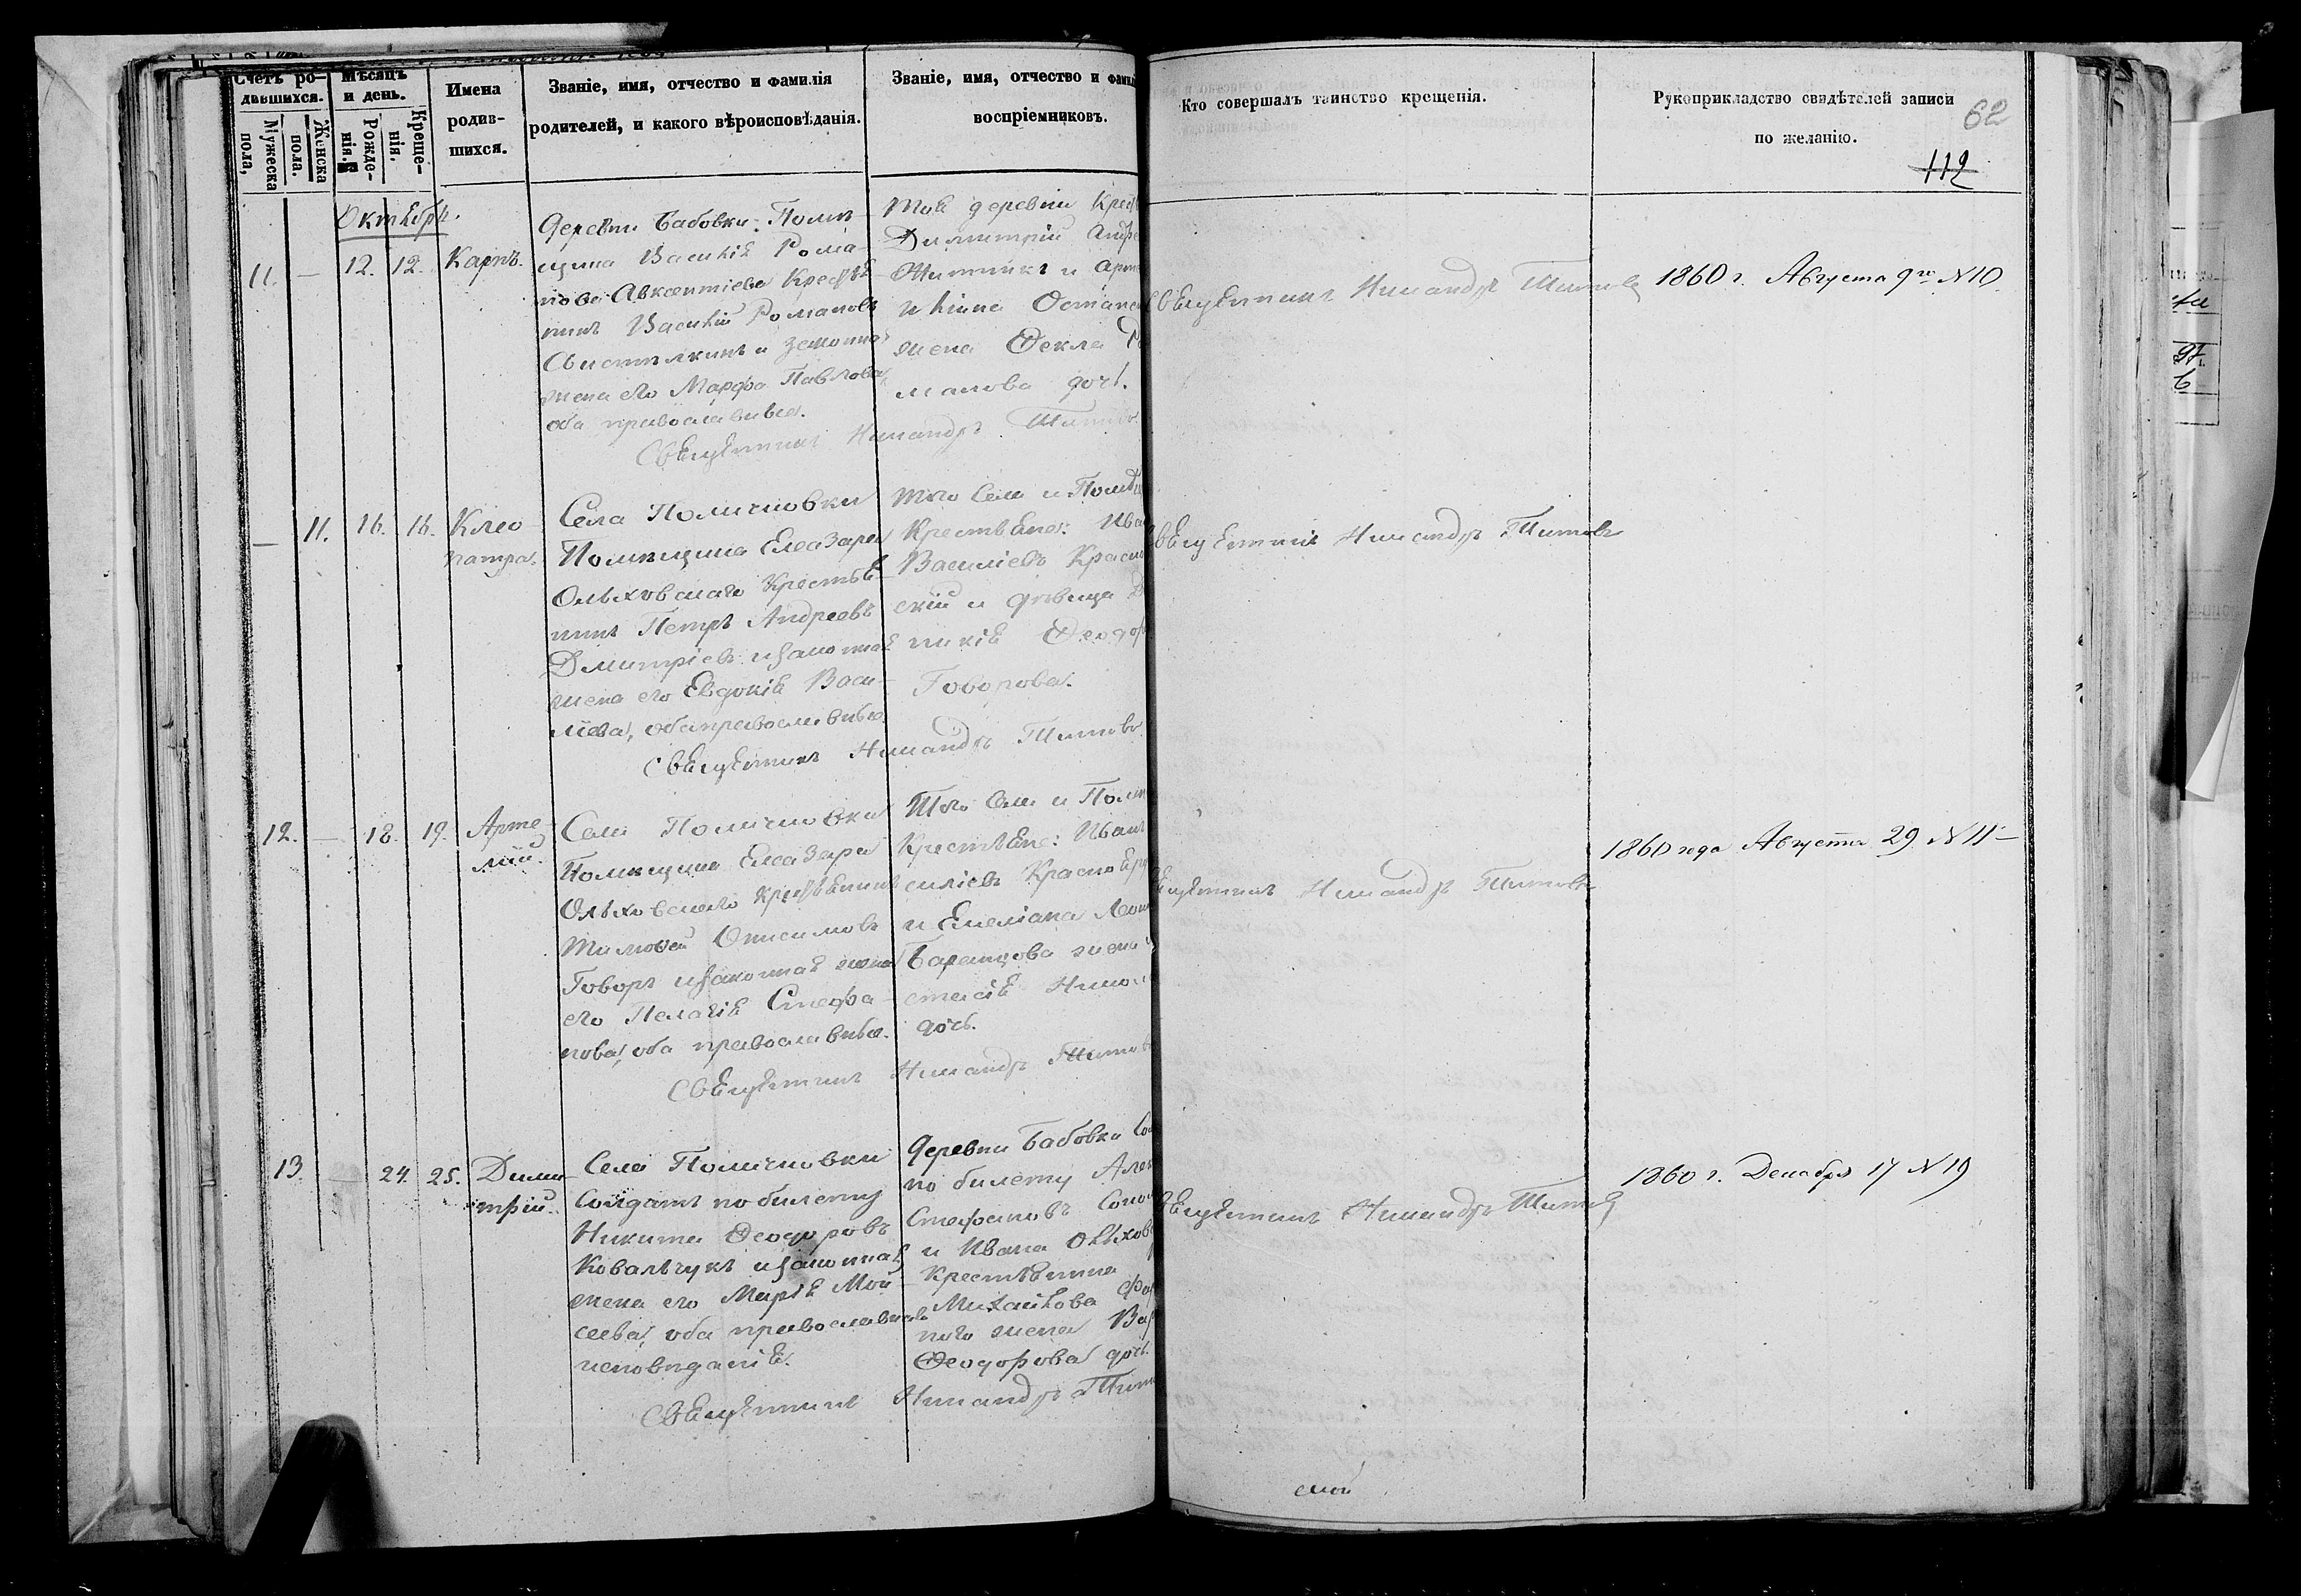 Счетъ ро-
дившихся.
Мужеска
пола,
Женска
пола.
Мѣсяцъ
и день.
Рожде-
нія.
Креще-
нія.
Имена
родив-
шихся.
Званіе, имя, отчество и фамилія
родителей, и какого вѣроисповѣданія.
Званіе, имя, отчество и фамил
воспріемниковъ.
Кто совершалъ таинство крещенія.
Рукоприкладство свидѣтелей записи
по желанію.
62
112
Октябрь.
11. — 12. 12. Карпъ.
Деревни Бабовки Помѣ-
щика Василія Рома-
нова Авксентіева Крестья-
нинъ Василій Романовъ
и законная
жена его Марфа Павлова,
оба православные.
Той деревни Крест
Димитрій Андре
Житникъ и
жена Ѳекла Ро
манова дочь.
Священникъ Никандръ Титовъ
Священникъ Никандръ Титовъ
1860 г. Августа 9го N 10
— 11. 16. 16. Клео
патра.
Села Поличновки
Помѣщика Елеазара
Ольховскаго Крестья-
нинъ Петръ Андреевъ
Димитріевъ и законная
жена его Евдокія Васи-
ліева, оба православные
Того Села и Помѣщ
Крестьяне: Ива
Василіевъ Красно
скій и дѣвица Д
никія Ѳеодор
Говорова.
Священникъ Никандръ Титовъ
Священникъ Никандръ Титовъ
12. — 18. 19. Арте-
мій.
Села Поличновки
Помѣщика Елеазара
Ольховскаго Крестьянинъ
Тимоѳей Онисимовъ
Говоръ и законная жена
его Пелагія Стефа-
нова, оба православные.
Того Села и Помѣ
Крестьяне: Иванъ
силіевъ Красно
и Емеліана Леон
Баранцова жена
стасія Нико
дочь.
Священникъ Никандръ Титовъ
Священникъ Никандръ Титовъ
1860 года Августа 29 N 11
13. — 24. 25. Дими-
трій.
Села Поличновки
Солдатъ по билету
Никита Ѳеодоровъ
Ковальчукъ и законная
жена его Марія Мои-
сеева, оба православнаго
исповѣданія.
Деревни Бабовки Сол
по билету Алек
Стефановъ Соко
и Ивана Ольховс
Крестьянина
Михайлова
жена Вар
Ѳеодорова дочь.
Священникъ Никандръ Тито
Священникъ Никандръ Титовъ
1860 г. Декабря 17 N 19